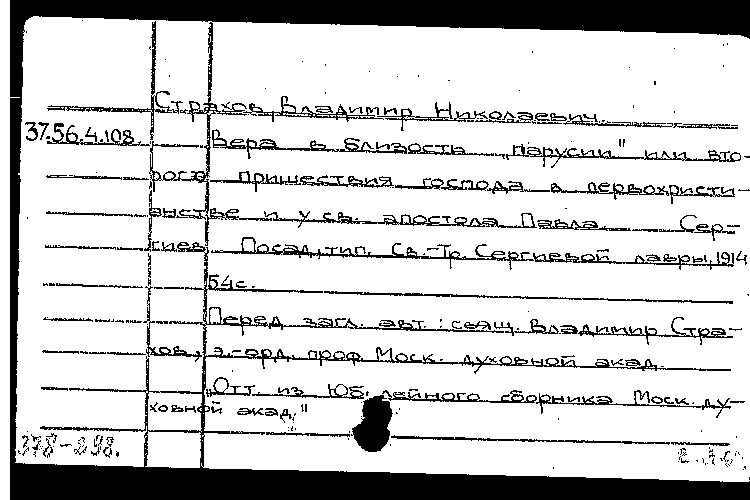 Страхов, Владимир Николаевич.
37.56.4.108. Вера в близость „парусии" или вто-
рого пришествия господа в первохристи-
анстве и у св. апостола Павла. Сер-
гиев Посад, тип. Св.-Тр. Сергиевой лавры, 1914
54с.
Перед загл. авт.: свящ. Владимир Стра-
хов, э.-орд. проф. Моск. духовной акад.
„Отт. из Юбилейного сборника Моск. ду-
ховной акад."
378-898.